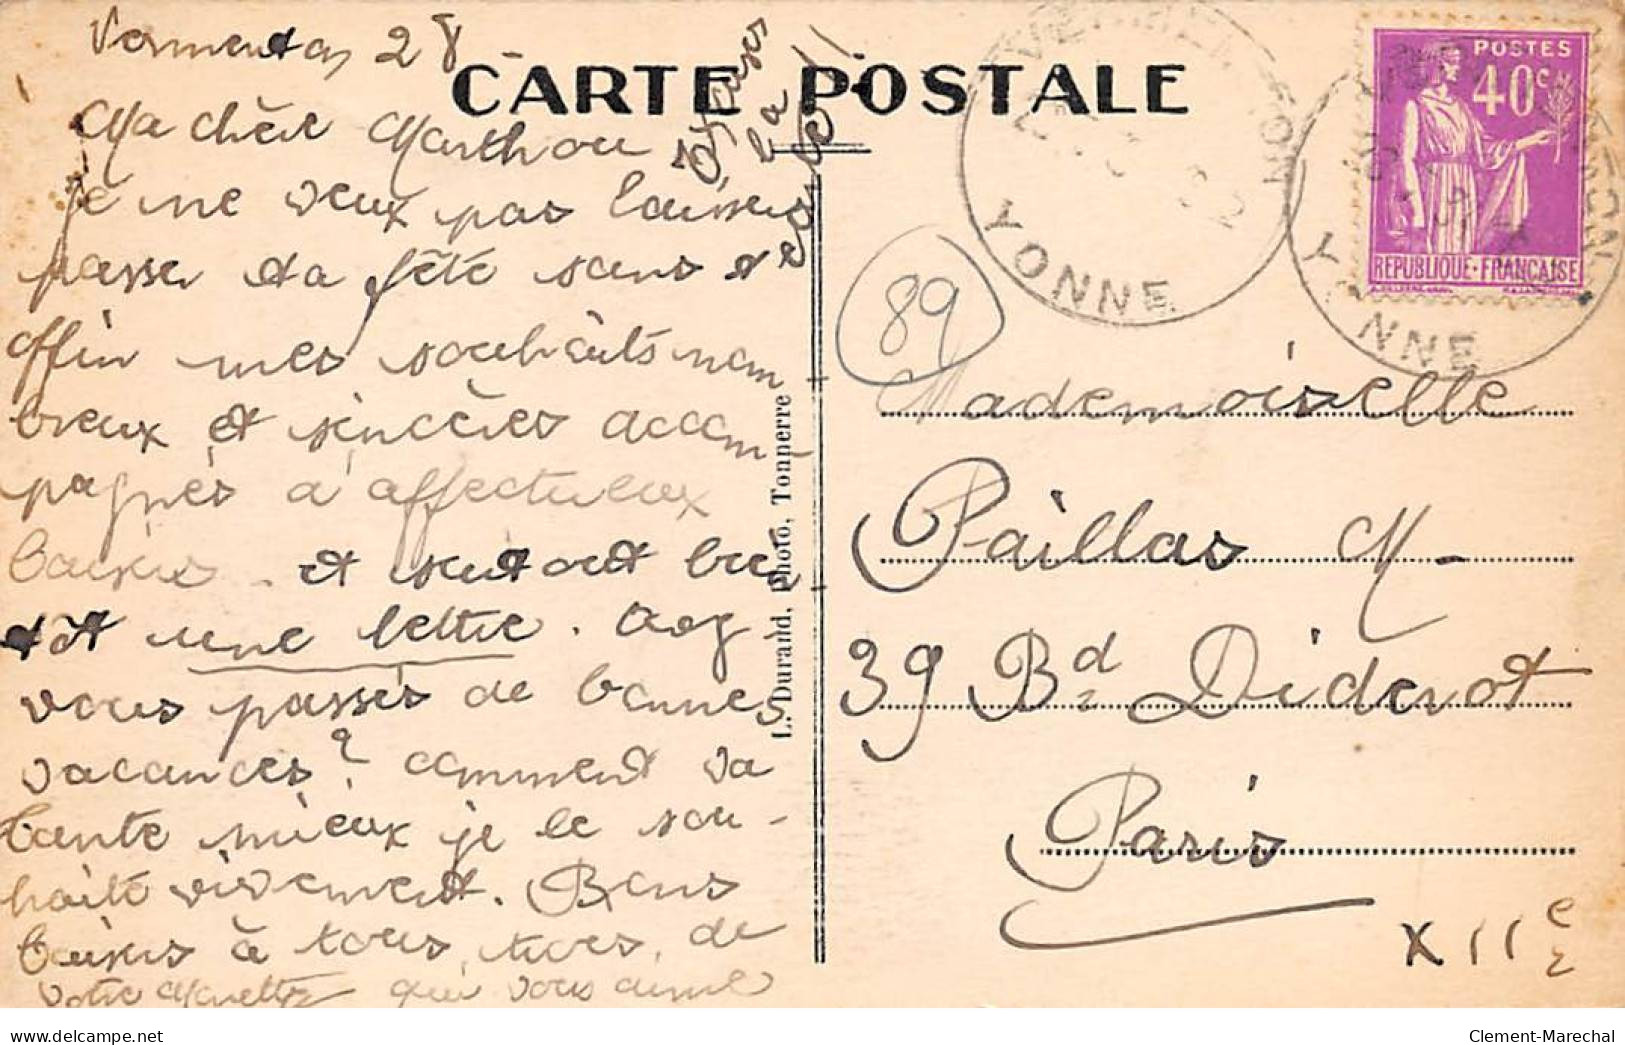 Vermenton 28
CARTE POSTALE
Ma chère
je ne veux pas laisser
passer ta fête sans t'
offrir mes souhaits nom
breux et sincères accom-
pagnés d'affectueux
baisers - et surtout bien
tôt une lettre.
vous passés de bonnes
vacances? comment va
tante mieux je le sou-
haite vivement. Bons
baisers à tous trois, de
votre qui vous aime
L. Durand, Photo, Tonnerre
89
YONNE
YONNE
POSTES
40c
REPUBLIQUE·FRANÇAISE
Mademoiselle
Paillas M-
39 Bd Diderot
Paris
XIIe
delcampe.net
Clement-Marechal